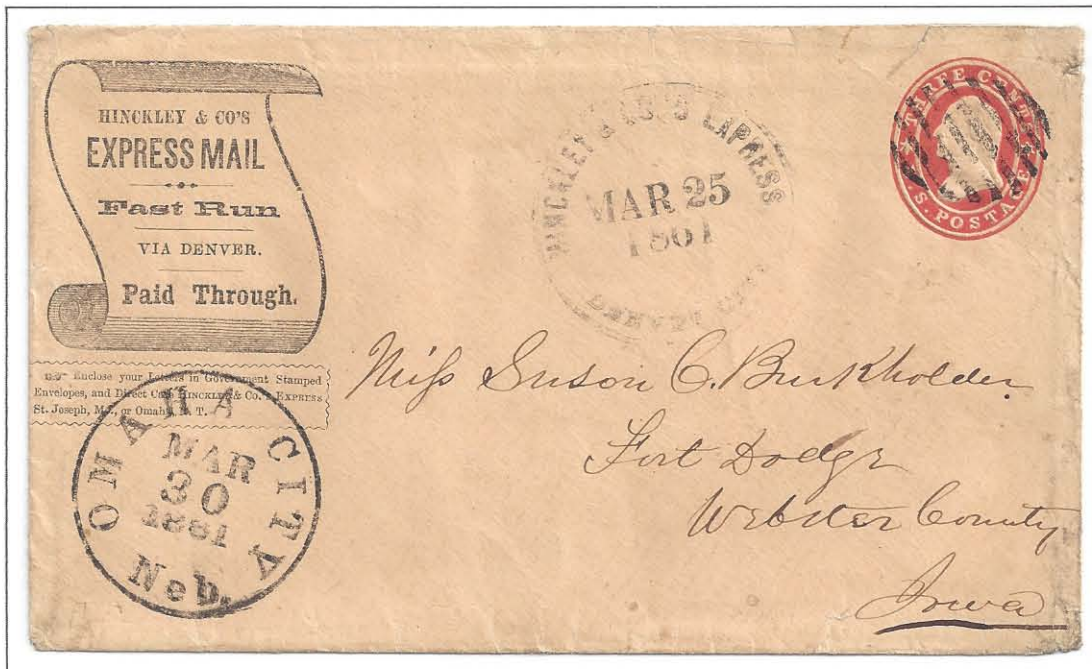 HINCKLEY & CO'S
EXPRESS MAIL
Fast Run
VIA DENVER.
Paid Through.
Enclose your Letters in Government Stamped
Envelopes, and Direct Care HINCKLEY & Co.'s EXPRESS
St. Joseph, Mo., or Omaha, N. T.
HINCKLEY & CO'S EXPRESS
MAR 25
1861
THREE CENTS
U.S. POSTAGE
OMAHA CITY
MAR
30
1861
Neb.
Miss Suson C. Burkholder
Fort Dodge
Webster County
Iowa